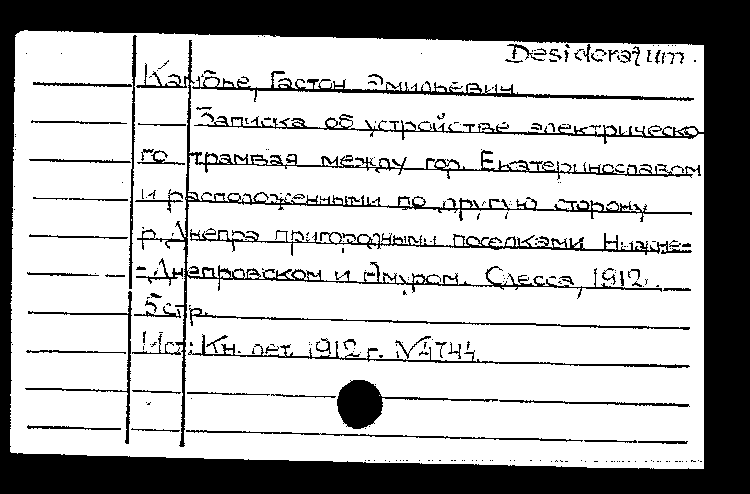 Desideratum.
Камбье, Гастон Эмильевич
Записка об устройстве электрическо-
го трамвая между гор. Екатеринославом
и расположенными по другую сторону
р. Днепра пригородными поселками Нижне-
-Днепровском и Амуром. Одесса, 1912.
5 стр.
Ист: Кн. лет. 1912 г. №4744.